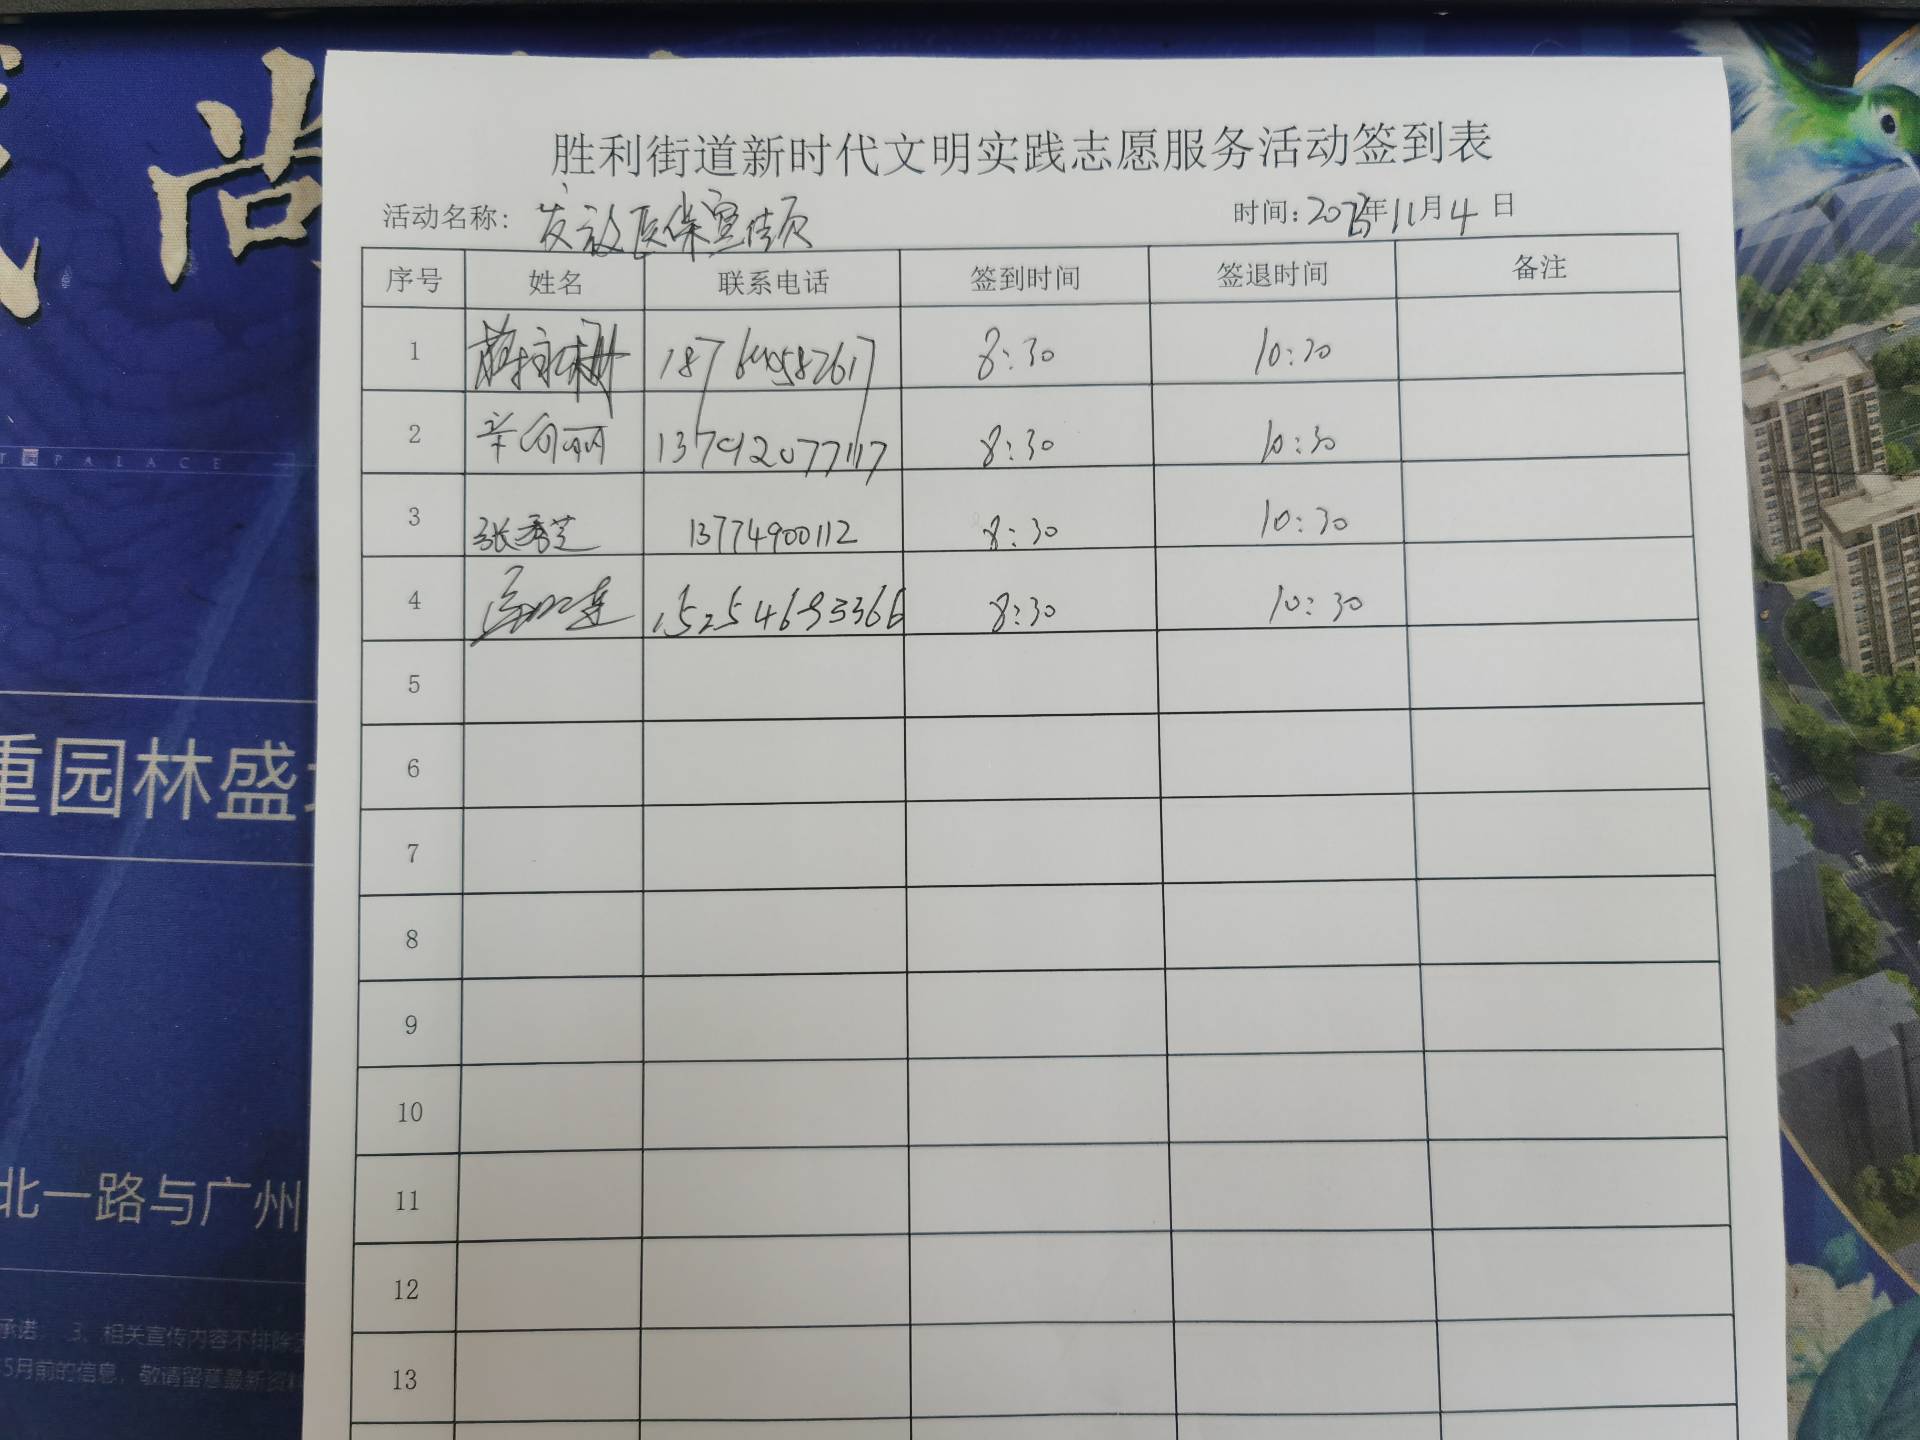 尚
胜利街道新时代文明实践志愿服务活动签到表
活动名称: 发放医保宣传页 时间: 2023年11月4日
序号 姓名 联系电话 签到时间 签退时间 备注
1 8:30 10:30
2 辛向丽 13792077117 8:30 10:30
3 张秀芝 13774900112 8:30 10:30
4 15254693366 8:30 10:30
5
6
7
8
9
10
11
12
13
PALACE
重园林盛
北一路与广州
承诺 3、相关宣传内容不排除
5月前的信息，敬请留意最新资料